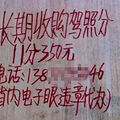 长期收购驾照分
1分350元
电话:138 46
省内电子眼违章代办